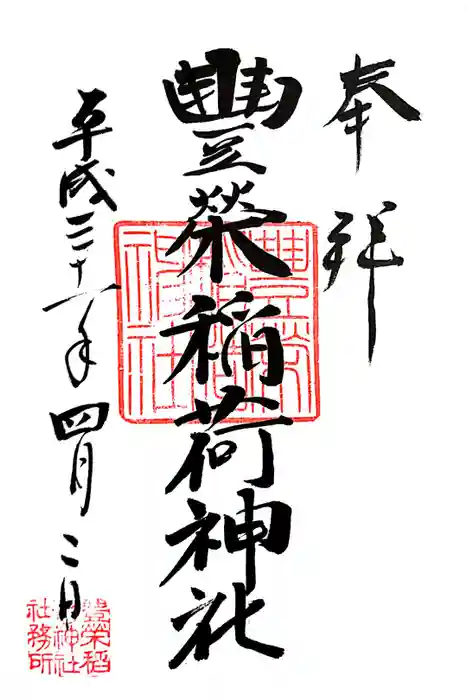 奉拝
豐榮稲荷神社
平成三十一年四月二日
豊榮稲荷神社
豊榮稲荷神社社務所